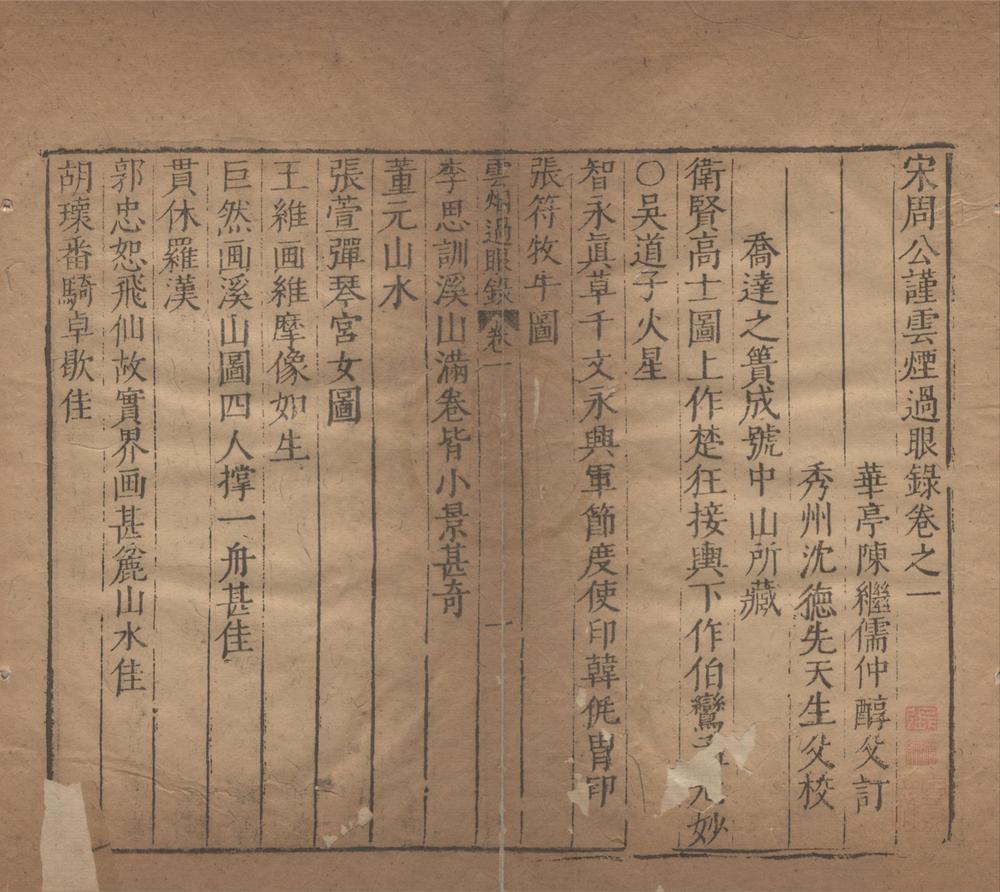 宋周公謹雲煙過眼錄卷之一
華亭陳繼儒仲醇父訂
秀州沈德先天生父校
喬達之簣成號中山所藏
衛賢高士圖上作楚狂接輿下作伯鸞 尤妙
〇吳道子火星
智永眞草千文永興軍節度使印韓侂冑印
張符牧牛圖
雲烟過眼錄 卷一 一
李思訓溪山滿卷皆小景甚奇
董元山水
張萱彈琴宮女圖
王維画維摩像如生
巨然画溪山圖四人撑一舟甚佳
貫休羅漢
郭忠恕飛仙故實界画甚麄山水佳
胡瓌番騎卓歇佳